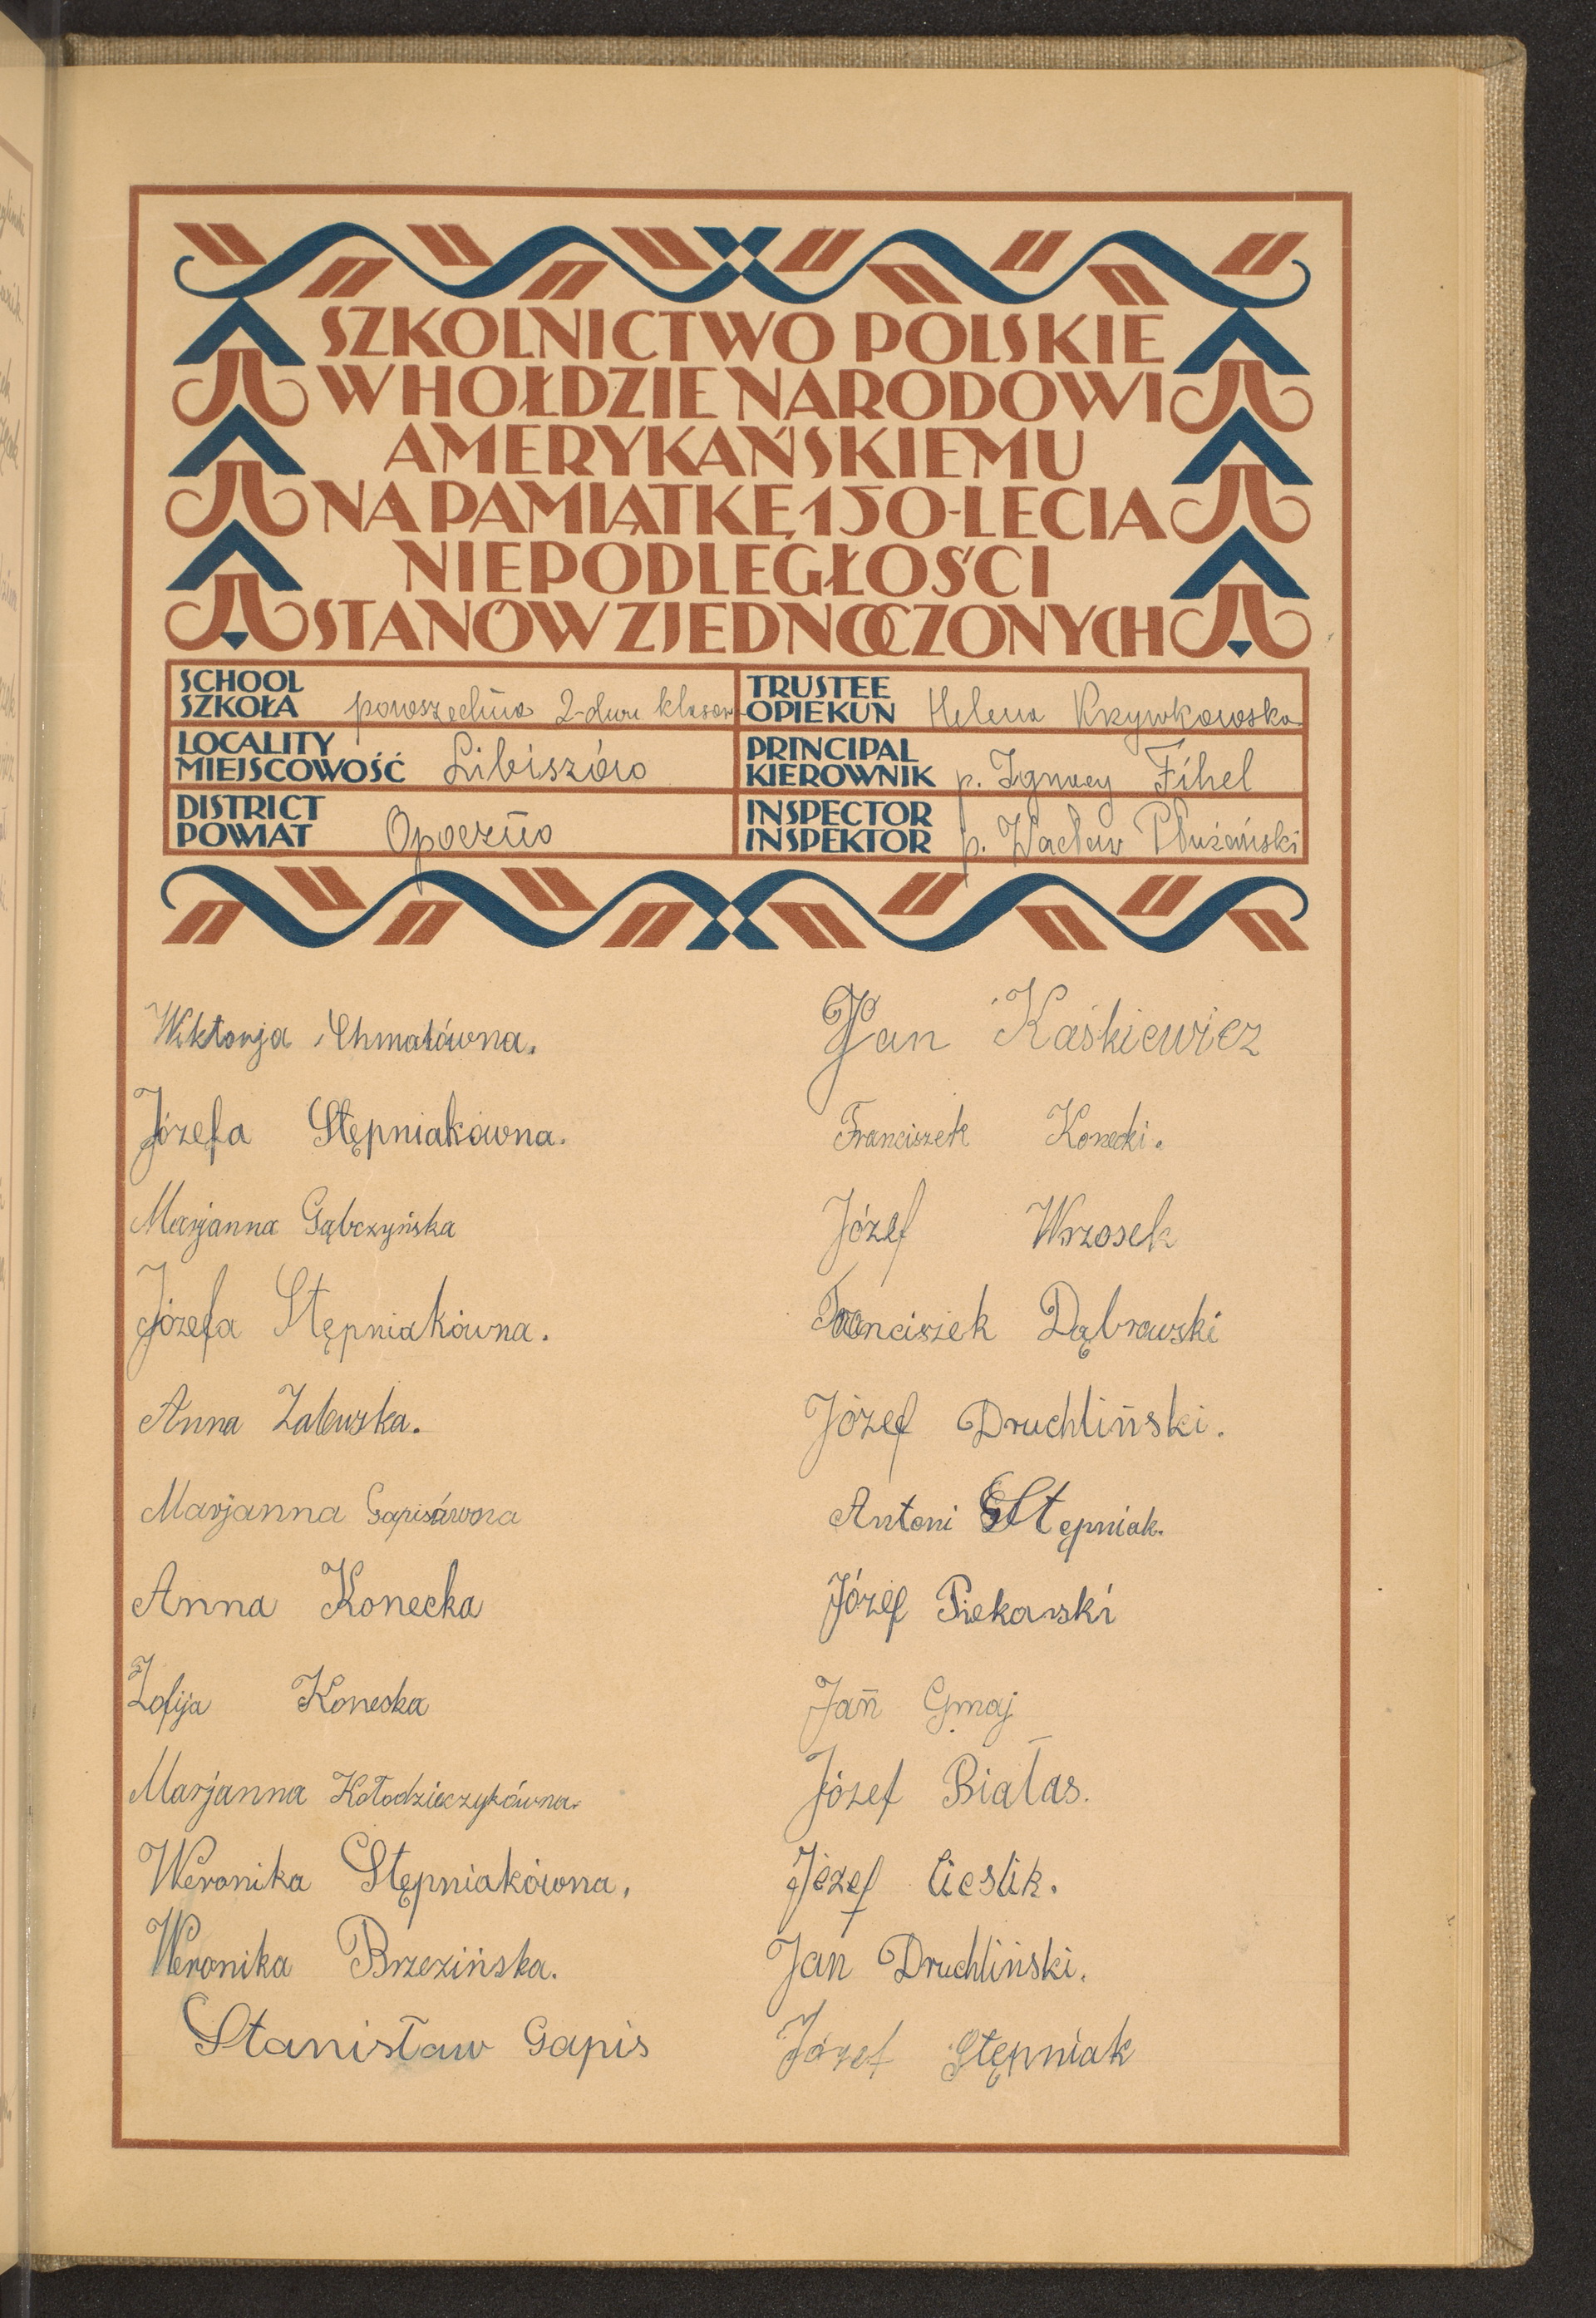 SZKOLNICTWO POLSKIE
W HOŁDZIE NARODOWI
AMERYKAŃSKIEMU
NA PAMIĄTKĘ 150-LECIA
NIEPODLEGŁOŚCI
STANÓW ZJEDNOCZONYCH
SCHOOL
SZKOŁA powszechna 2-dwu klasow
TRUSTEE
OPIEKUN Helena Krzywkowska
LOCALITY
MIEJSCOWOŚĆ Libiszów
PRINCIPAL
KIEROWNIK p. Ignacy Fihel
DISTRICT
POWIAT Opoczno
INSPECTOR
INSPEKTOR p. Wacław Płużański
Wiktorja Chmalówna.
Józefa Stępniakówna.
Marjanna Gąbczyńska
Józefa Stępniakówna.
Anna Zalewska.
Marjanna Gapisówna
Anna Konecka
Zofija Koneska
Marjanna Kołodzieczykówna.
Weronika Stępniakówna,
Weronika Brzezińska.
Stanisław Gapis
Jan Kaśkiewicz
Franciszek Konecki.
Józef Wrzosek
Franciszek Dąbrowski
Józef Druchliński.
Antoni Stępniak.
Józef Piekarski
Jan Gmaj
Józef Białas.
Józef Cieslik.
Jan Druchliński.
Józef Stępniak